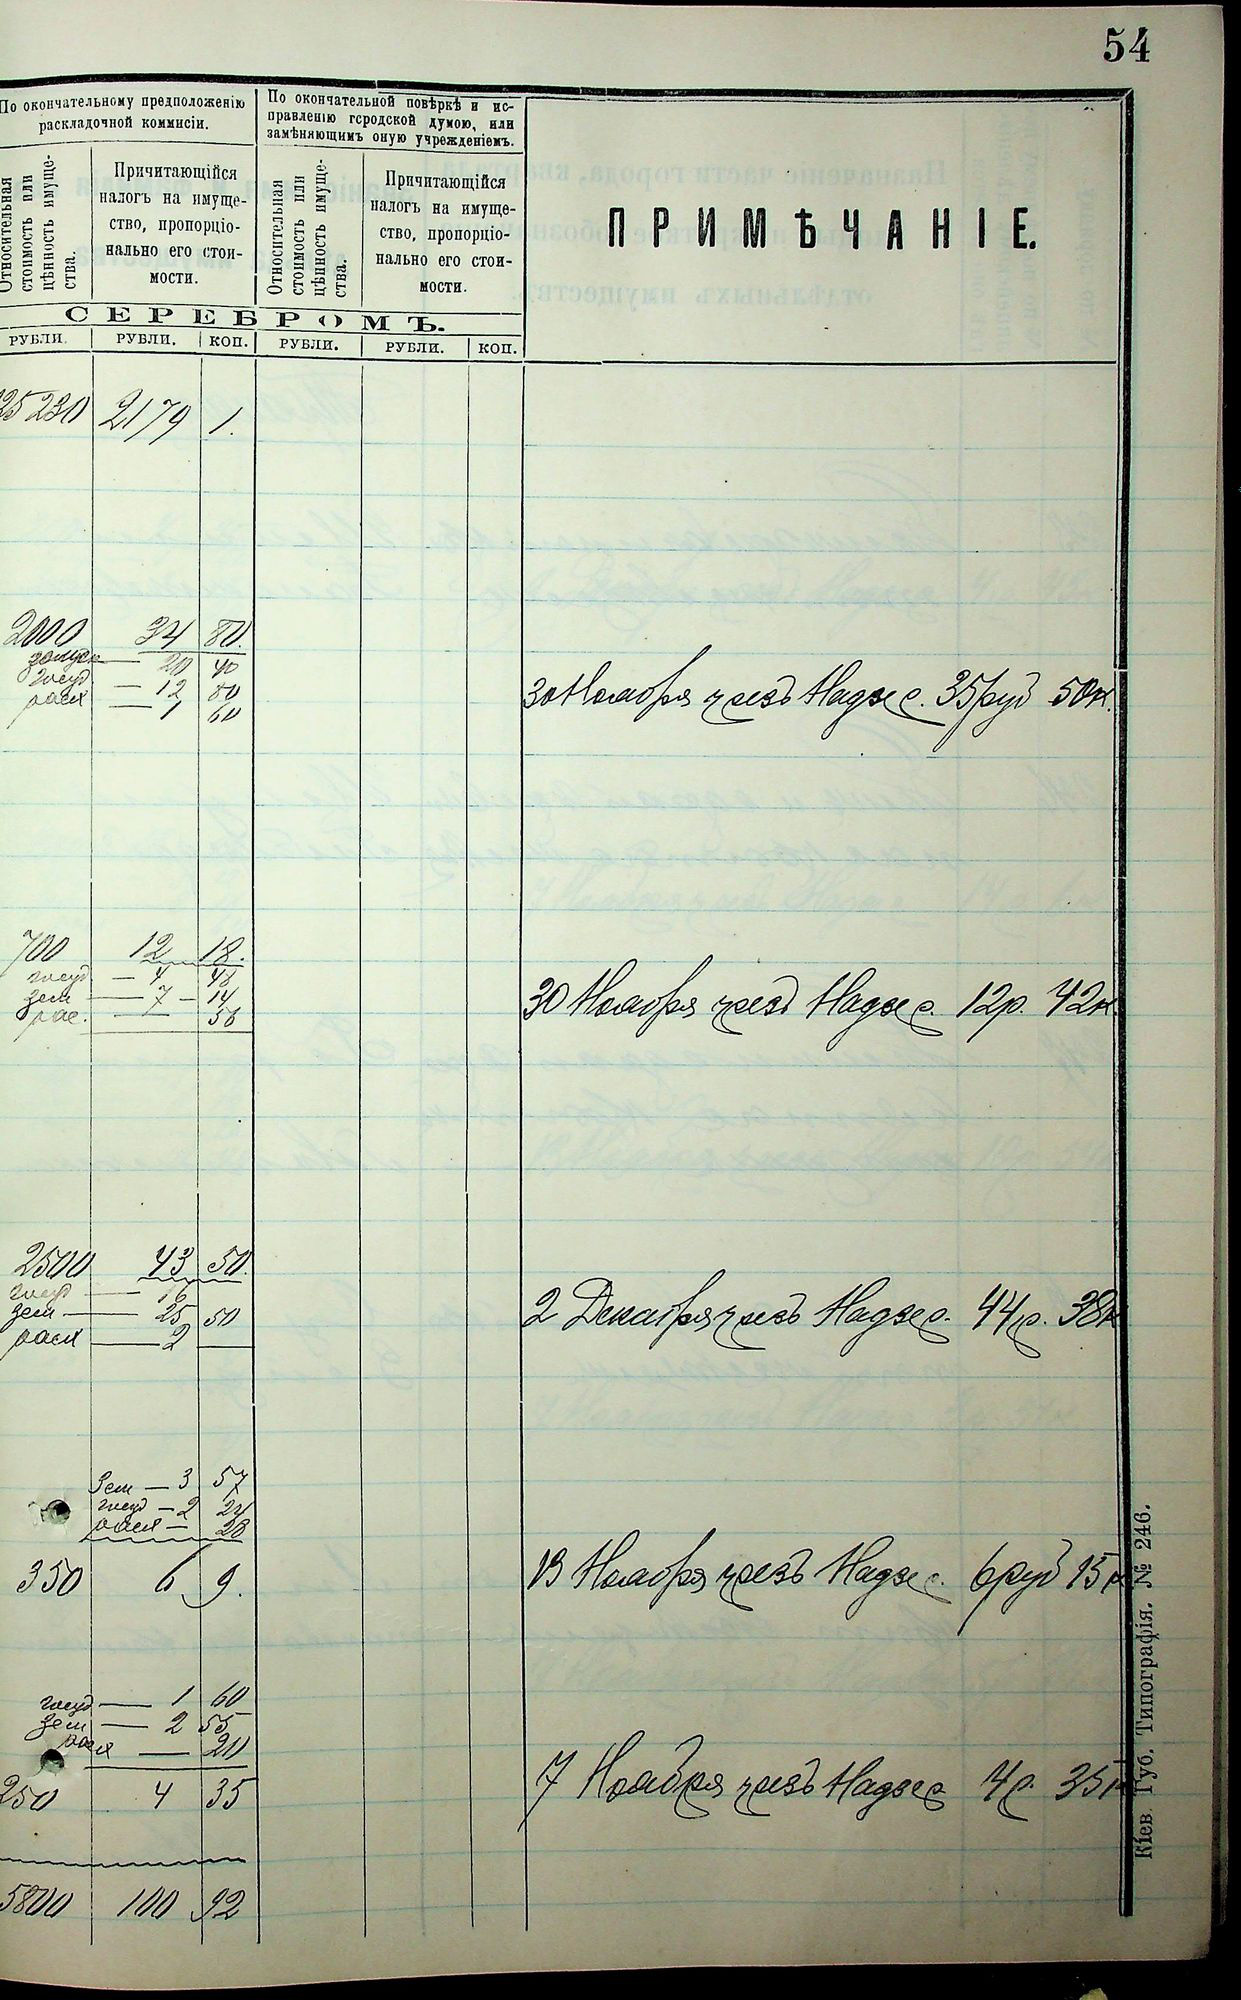 54
По окончательному предположенію
раскладочной коммисіи.
По окончательной повѣркѣ и ис-
правленію городской думою, или
замѣняющимъ оную учрежденіемъ.
Относительная
стоимость или
цѣнность имуще-
ства.
Причитающійся
налогъ на имуще-
ство, пропорціо-
нально его стои-
мости.
Относительная
стоимость или
цѣнность имуще-
ства.
Причитающійся
налогъ на имуще-
ство, пропорціо-
нально его стои-
мости.
ПРИМѢЧАНІЕ.
СЕРЕБРОМЪ.
РУБЛИ. РУБЛИ. КОП. РУБЛИ. РУБЛИ. КОП.
25230 2179 1.
2000 34 80.
20 40
госуд — 12 80
раскл — 1 60
30 Ноября чрезъ Надзес. 35 руб 50 к.
700 12 18.
госуд — 4 48
зем — 7 — 14
рас. — 56
30 Ноября чрезъ Надзес. 12 р. 42 к
2500 43 50.
госуд — 16
зем — 25 50
раскл — 2
2 Декабря чрезъ Надзес. 44 р. 38 к
Зем — 3 57
госуд — 2 24
раскл — 28
350 6 9.
13 Ноября чрезъ Надзес. 6 руб 15 к
госуд — 1 60
зем — 2 55
раскл — 20
250 4 35
7 Ноября чрезъ Надзес 4 р. 35 к
5800 100 92
Кіев. Губ. Типографія. № 246.